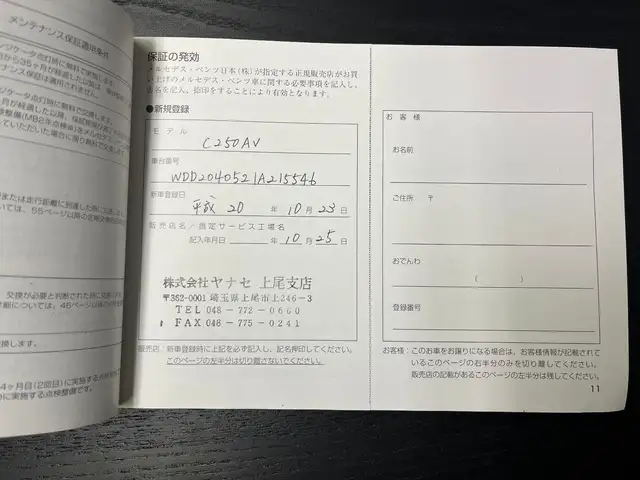 メンテナンス保証適用条件
保証の発効
メルセデス・ベンツ日本(株)が指定する正規販売店がお買
い上げのメルセデス・ベンツ車に関する必要事項を記入し、
店名を記入、捺印をすることにより有効となります。
●新規登録
モデル
C250AV
車台番号
WDD2040521A215546
新車登録日
平成 20 年 10 月 23 日
販売店名/指定サービス工場名
記入年月日 年 10 月 25 日
株式会社ヤナセ 上尾支店
〒362-0001 埼玉県上尾市上246-3
TEL 048-772-0660
FAX 048-775-0241
販売店:新車登録時に上記を必ず記入し、記名押印してください。
このページの左半分は切り離さないでください。
お客様
お名前
ご住所 〒
おでんわ
( )
登録番号
お客様:このお車をお譲りになる場合は、お客様情報が記載されて
いるこのページの右半分のみを切り離してください。
販売店の記載があるこのページの左半分は残してください。
11